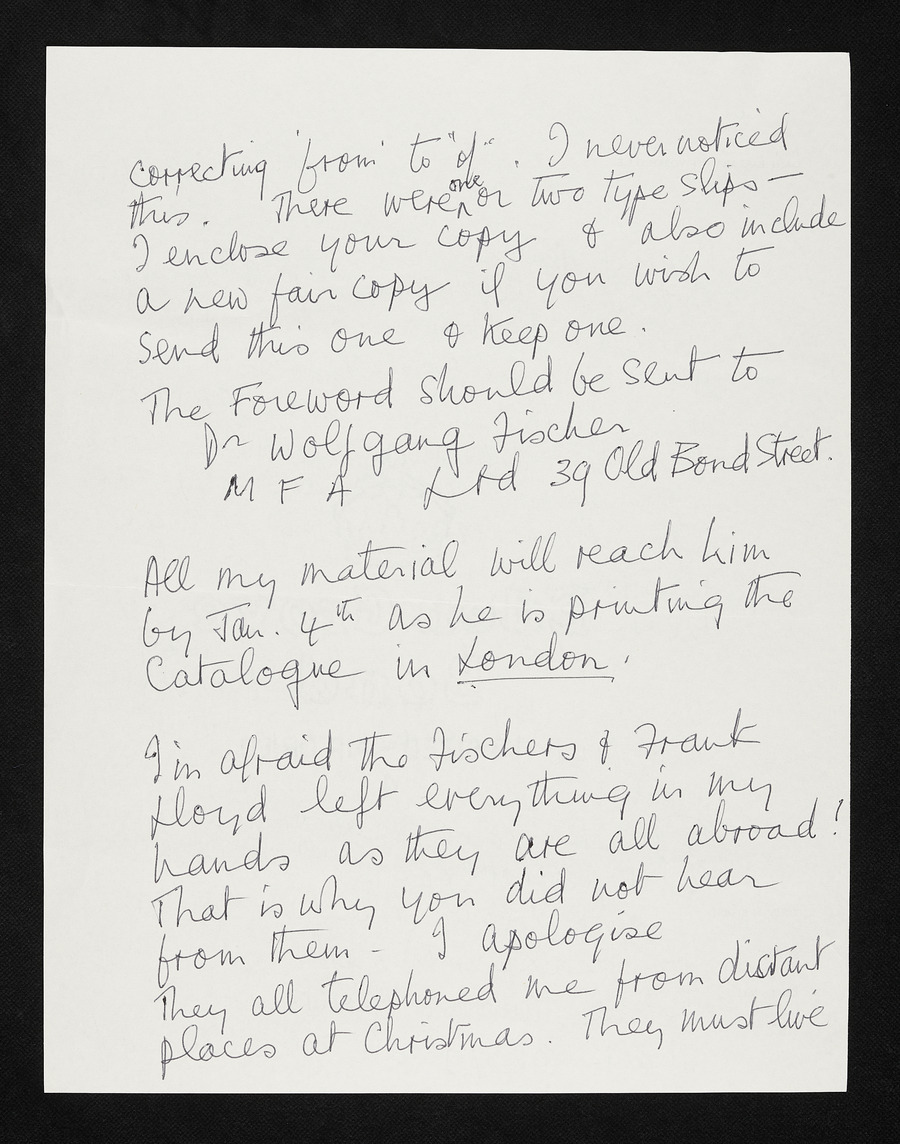 correcting 'from' to "of". I never noticed
this. There were one or two type slips —
I enclose your copy & also include
a new fair copy if you wish to
send this one & keep one.
The Foreword should be sent to
Dr Wolfgang Fischer
M F A Ltd 39 Old Bond Street.
All my material will reach him
by Jan. 4th as he is printing the
Catalogue in London.
I'm afraid the Fischers & Frank
Lloyd left everything in my
hands as they are all abroad!
That is why you did not hear
from them - I apologise
They all telephoned me from distant
places at Christmas. They must live